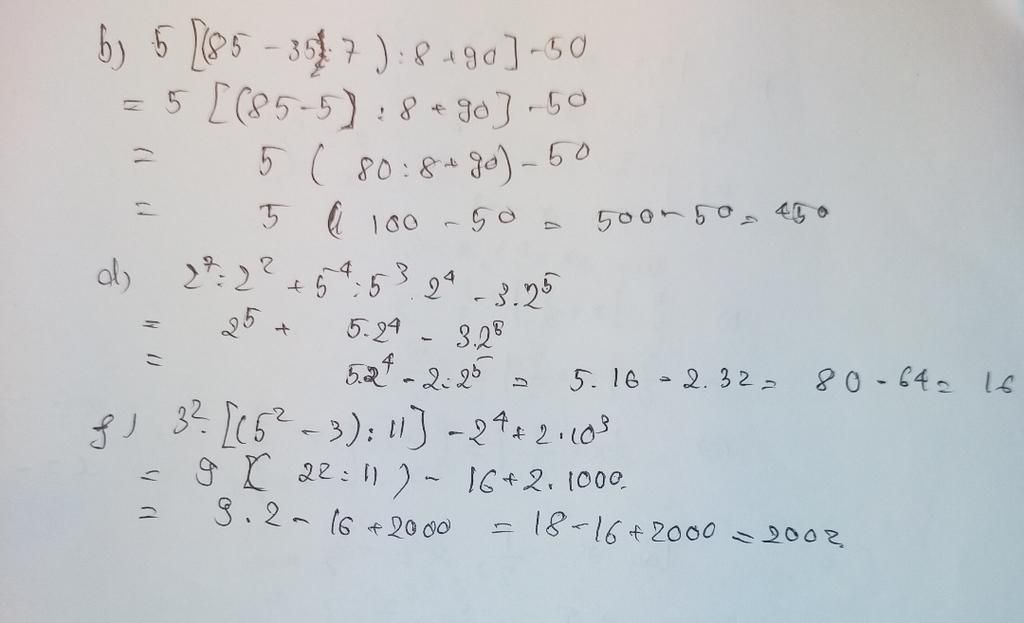 b) 5 [(85 - 35 : 7) : 8 + 90] - 50
= 5 [(85-5) : 8 + 90] - 50
= 5 ( 80 : 8 + 90) - 50
= 5 ( 100 - 50 = 500 - 50 = 450
d) 2⁷ : 2² + 5⁴ : 5³ . 2⁴ - 3.2⁵
= 2⁵ + 5.2⁴ - 3.2⁵
= 5.2⁴ - 2.2⁵ = 5.16 - 2.32 = 80 - 64 = 16
f) 3². [(5² - 3) : 11] - 2⁴ + 2.10³
= 9 ( 22 : 11 ) - 16 + 2.1000.
= 9.2 - 16 + 2000 = 18 - 16 + 2000 = 2002.